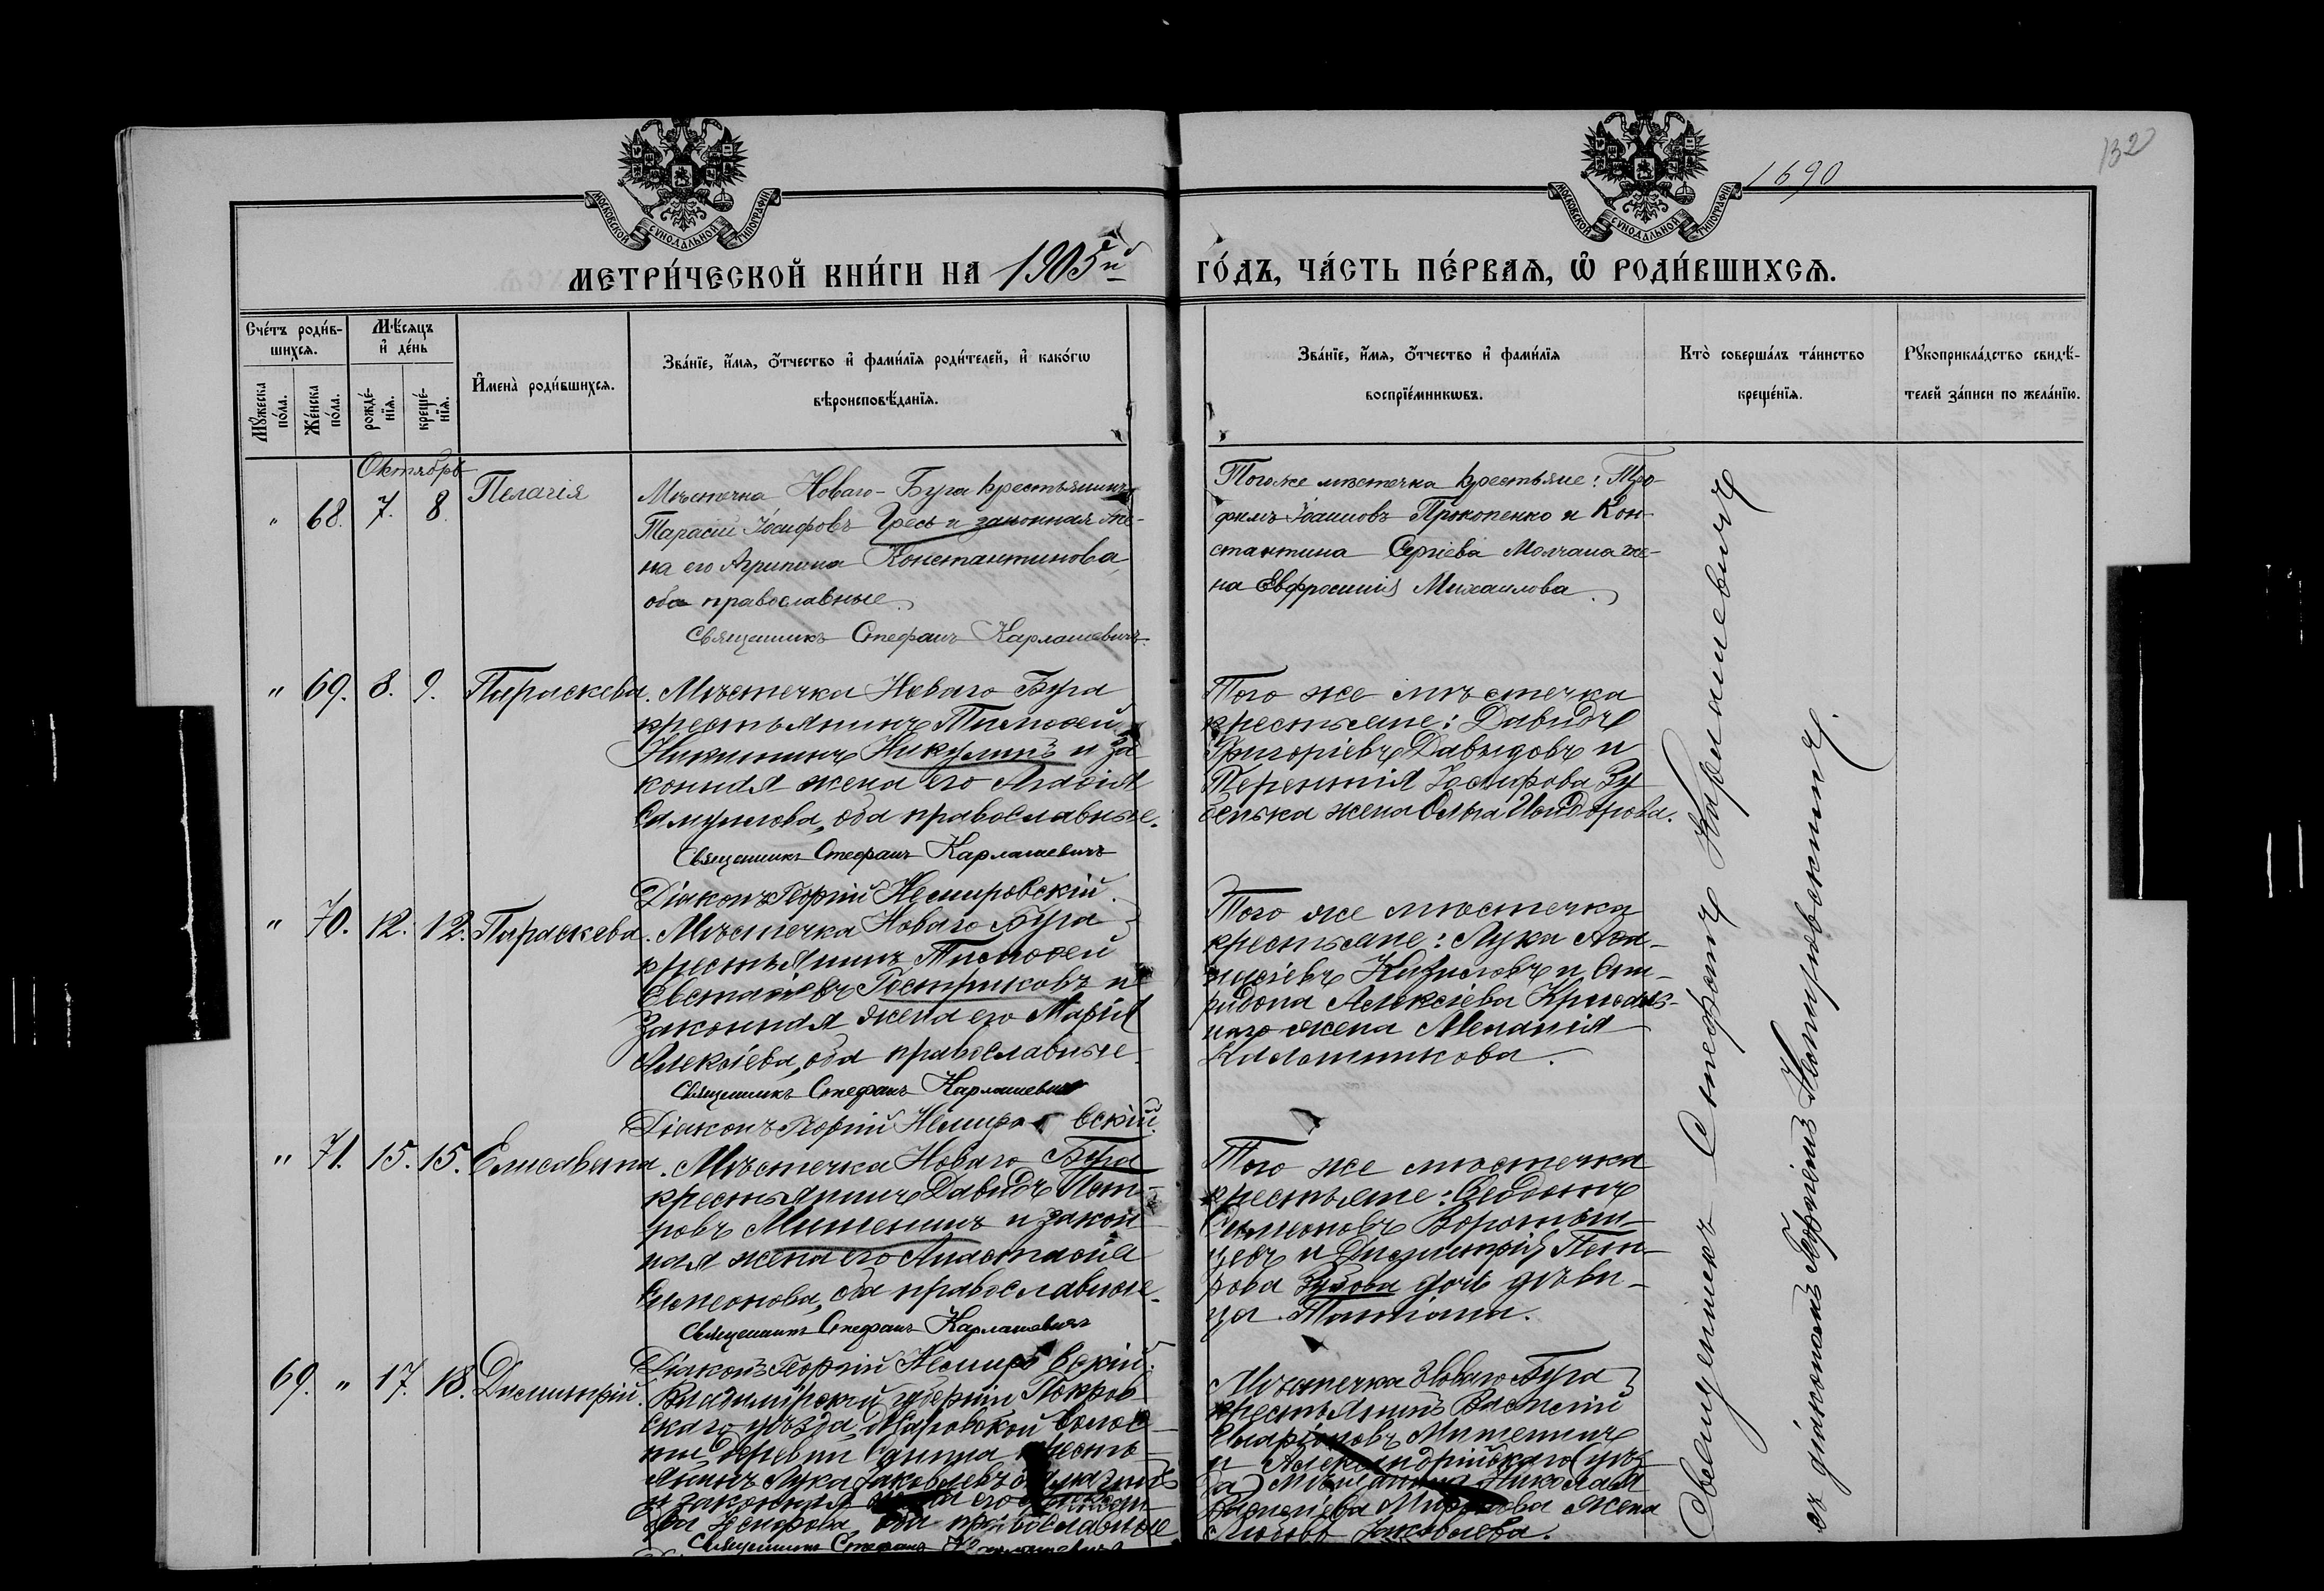 132
1690
МОСКОВСКОЙ СѴНОДАЛЬНОЙ ТИПОГРАФІИ
МОСКОВСКОЙ СѴНОДАЛЬНОЙ ТИПОГРАФІИ
МЕТРИ́ЧЕСКОЙ КНИ́ГИ НА 1905й ГО́ДЪ, ЧА́СТЬ ПЕ́РВАѦ, Ѡ҆ РОДИ́ВШИХСѦ.
Сче́тъ роди́в-
шихсѧ.
Мꙋ́жеска по́ла.
Же́нска по́ла.
Мѣ́сяцъ
и҆ де́нь
рожде́-
нїѧ.
креще́-
нїѧ.
И҆мена̀ роди́вшихсѧ.
Зва́нїе, и҆́мѧ, ѻ҆́тчество и҆ фами́лїѧ роди́телей, и҆ како́гѡ
вѣроисповѣ́данїѧ.
Зва́нїе, и҆́мѧ, ѻ҆́тчество и҆ фами́лїѧ
воспрїе́мникѡвъ.
Кто̀ соверша́лъ та́инство
креще́нїѧ.
Рꙋкоприкла́дство свидѣ́-
телей за́писи по жела́нїю.
Октябрь
" 68. 7. 8. Пелагія
Мѣстечка Новаго-Буга крестьянинъ
Тарасій Іосифовъ Гресь и законная же-
на его Агрипина Константинова
оба православные.
Священникъ Стефанъ Карлашевичъ.
Тогоже мѣстечка крестьяне: Тро-
фимъ Іоанновъ Прокопенко и Кон-
стантина Сергіева Молчана же-
на Евфросинія Михаилова.
" 69. 8. 9. Параскева.
Мѣстечка Новаго Буга
крестьянинъ Тимофей
Никитинъ Никулинъ и за
конная жена его Агафія
Самуилова, оба православные.
Священникъ Стефанъ Карлашевичъ
Діаконъ Георгій Немировскій.
Того же мѣстечка
крестьяне: Давидъ
Григоріевъ Давыдовъ и
Терентія Іосифова Зу
женка жена Ольга Исидорова.
" 70. 12. 12. Параскева.
Мѣстечка Новаго Буга
крестьянинъ Тимофей
Евстафіевъ Гостриковъ и
законная жена его Марія
Алексіева, оба православные.
Священникъ Стефанъ Карлашевичъ
Діаконъ Георгій Немировскій.
Того же мѣстечка
крестьяне: Лука Афа-
насіевъ и Спи-
ридона Алексіева
наго жена Меланія
Каллистова.
" 71. 15. 15. Елисавета.
Мѣстечка Новаго Буга
крестьянинъ Давидъ Пет-
ровъ Митенинъ и закон
ная жена его Анастасія
Симеонова, оба православные.
Священникъ Стефанъ Карлашевичъ
Діаконъ Георгій Немировскій.
Того же мѣстечка
крестьяне: Феодотъ
Симеоновъ Воротын-
цевъ и Димитрія Пет-
рова Зубова дочь дѣви-
ца Татіана.
69. " 17. 18. Димитрій.
Владимірской губерніи Покров
скаго уѣзда, волос
ти, деревни кресть
янинъ Лука Іаковлевъ
и законная жена его
Іосифова, оба православные
Священникъ Стефанъ Карлашевичъ
Мѣстечка Новаго Буга
крестьянинъ Василій
Иларіоновъ Митенинъ
и Александрійскаго уѣз
да мѣщанина Николая
Васильева жена
Любовь Іаковлева.
Священникъ Стефанъ Карлашевичъ
съ діакономъ Георгіемъ Немировскимъ.